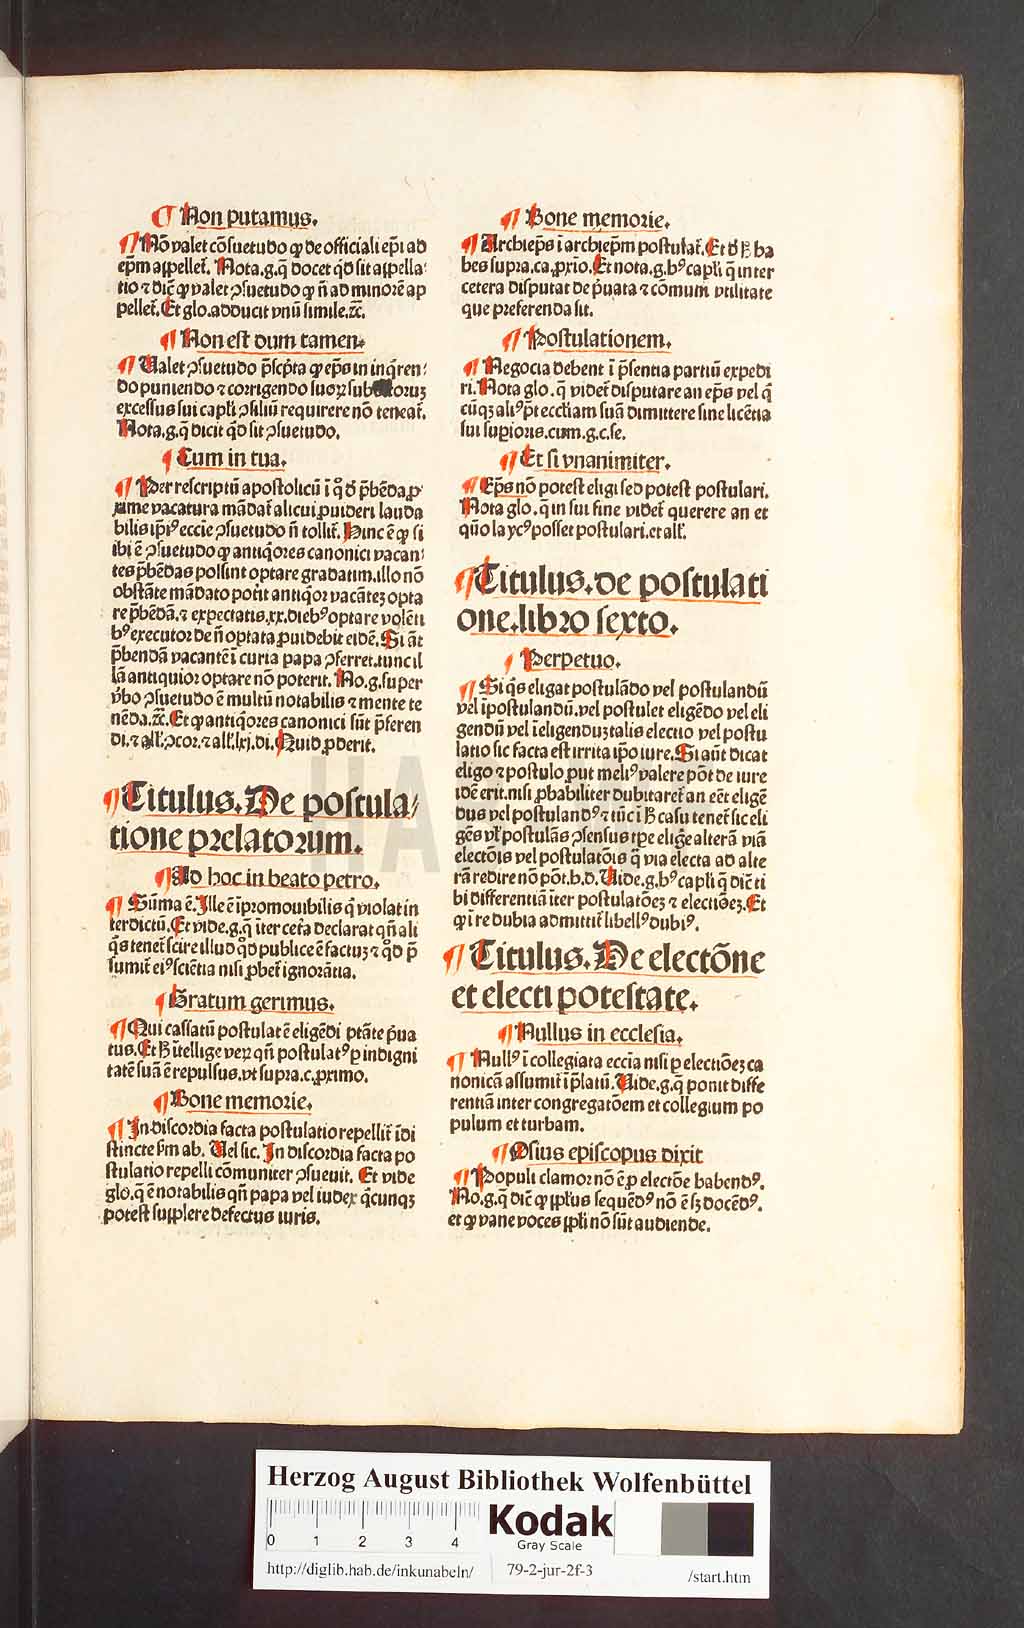 ¶ Non putamus.
¶ Nō valet cōsuetudo ꝙ de officiali ep̄i ad
ep̄m appellet̄. Nota.g.q̄ docet qd̄ sit appella⸗
tio ⁊ dic̄ ꝙ valet ꝯsuetudo ꝙ n̄ ad minorē ap
pellet̄. Et glo.adducit vnū simile.ꝛc̄.
¶ Non est dum tamen.
¶ Valet ꝯsuetudo p̄scp̄ta ꝙ ep̄s in inq̄ren⸗
do puniendo ⁊ corrigendo suoꝝ sub
excessus sui capl̓i ꝯsiliū requirere nō teneat̄.
Nota.g.q̄ dicit qd̄ sit ꝯsuetudo.
¶ Cum in tua.
¶ Per rescriptū apostolicū ī q̊ d̓ p̄bēda ꝓ
xime vacatura mādat̄ alicui ꝓuideri lauda
bilis ip̄iꝰ eccīe ꝯsuetudo n̄ tollit̄. Hinc ē ꝙ si
ibi ē ꝯsuetudo ꝙ antiq̓ores canonici vacan⸗
tes p̄bēdas possint optare gradatim.illo nō
obstāte mādato potit antiqͦor vacātez opta
re p̄bēdā.⁊ expectatis.xx.diebꝰ optare volēti
bꝰ executor de n̄ optata ꝓuidebit eidē. Si āt
p̄bendā vacantē ī curia papa ꝯferret.tunc il
lā antiquior optare nō poterit. No.g.super
v̓bo ꝯsuetudo ē multū notabilis ⁊ mente te
nēda.ꝛc̄. Et ꝙ antiq̓ores canonici sūt p̄feren
di.⁊ all̓.ꝯcor.⁊ all̓.lxj.di. Quid ꝓderit.
¶ Titulus. De postula⸗
tione prelatorum.
¶ Ad hoc in beato petro.
¶ Sūma ē. Ille ē īpromouibilis q̄ violat in
terdictū. Et vide.g.q̄ īter cet̓a declarat qn̄ ali
q̓s tenet̄ scire illud qd̄ publice ē factuz ⁊ qd̄ p̄
sumit̄ eiꝰ sciētia nisi ꝓbet̄ ignorātia.
¶ Gratum gerimus.
¶ Qui cassatū postulat ē eligēdi ptāte p̓ua
tus. Et ß ītellige veꝝ qn̄ postulatꝰ ꝑ indigni
tatē suā ē repulsus.vt supra.c.ꝓximo.
¶ Bone memorie.
¶ In discordia facta postulatio repellit̄ īdi
stincte sm̄ ab. Vel sic. In discordia facta po
stulatio repelli cōmuniter ꝯsueuit. Et vide
glo.q̄ ē notabilis qn̄ papa vel iudex q̄cunqꝫ
potest supplere defectus iuris.
¶ Bone memorie.
¶ Archiep̄s ī archiep̄m postulat̄. Et d̓ ß ha
bes supra.ca.ꝓxīo. Et nota.g.hꝰ capl̓i q̄ inter
cetera disputat de p̓uata ⁊ cōmuni vtilitate
que preferenda sit.
¶ Postulationem.
¶ Negocia debent ī p̄sentia partiū expedi
ri. Nota glo.q̄ videt̄ disputare an ep̄s vel q̄
cūqꝫ aliꝰ p̄t eccl̓iam suā dimittere sine licētia
sui sup̄ioris.cum.g.c.se.
¶ Et si vnanimiter.
¶ Ep̄s nō potest eligi sed potest postulari.
Nota glo.q̄ in sui fine videt̄ querere an et
qn̄o laycꝰ posset postulari.et all̓.
¶ Titulus.de postulati
one.libro sexto.
¶ Perpetuo.
¶ Si q̓s eligat postulādo vel postulandū
vel īpostulandū.vel postulet eligēdo vel eli
gendū vel īeligenduz talis electio vel postu
latio sic facta est irrita ip̄o iure. Si aūt dicat
eligo ⁊ postulo ꝓut meliꝰ valere pōt de iure
idē erit.nisi ꝓbabiliter dubitaret̄ an eēt eligē
dus vel postulandꝰ ⁊ tūc ī ß casu tenet̄ sic eli
gēs vl̓ postulās ꝯsensus tpe elig̓e alterā viā
electōis vel postulatōis q̄ via electa ad alte
rā redire nō pōt.h.d. Vide.g.hꝰ capl̓i q̄ dic̄ ti
bi differentiā īter postulatōez ⁊ electiōez. Et
ꝙ ī re dubia admittit̄ libellꝰ dubiꝰ.
¶ Titulus. De electōne
et electi potestate.
¶ Nullus in ecclesia.
¶ Nullꝰ ī collegiata eccīa nisi ꝑ electiōez ca
nonicā assumit̄ ī p̄latū. Vide.g.q̄ ponit diffe
rentiā inter congregatōem et collegium po
pulum et turbam.
¶ Osius episcopus dixit
¶ Populi clamor nō ē ꝓ electōe habendꝰ.
No.g.q̄ dic̄ ꝙ ppl̓us sequēdꝰ nō ē sꝫ docēdꝰ.
et ꝙ vane voces ppl̓i nō sūt audiende.
HAB
Herzog August Bibliothek Wolfenbüttel
0 1 2 3 4
Kodak
Gray Scale
http://diglib.hab.de/inkunabeln/ 79-2-jur-2f-3 /start.htm